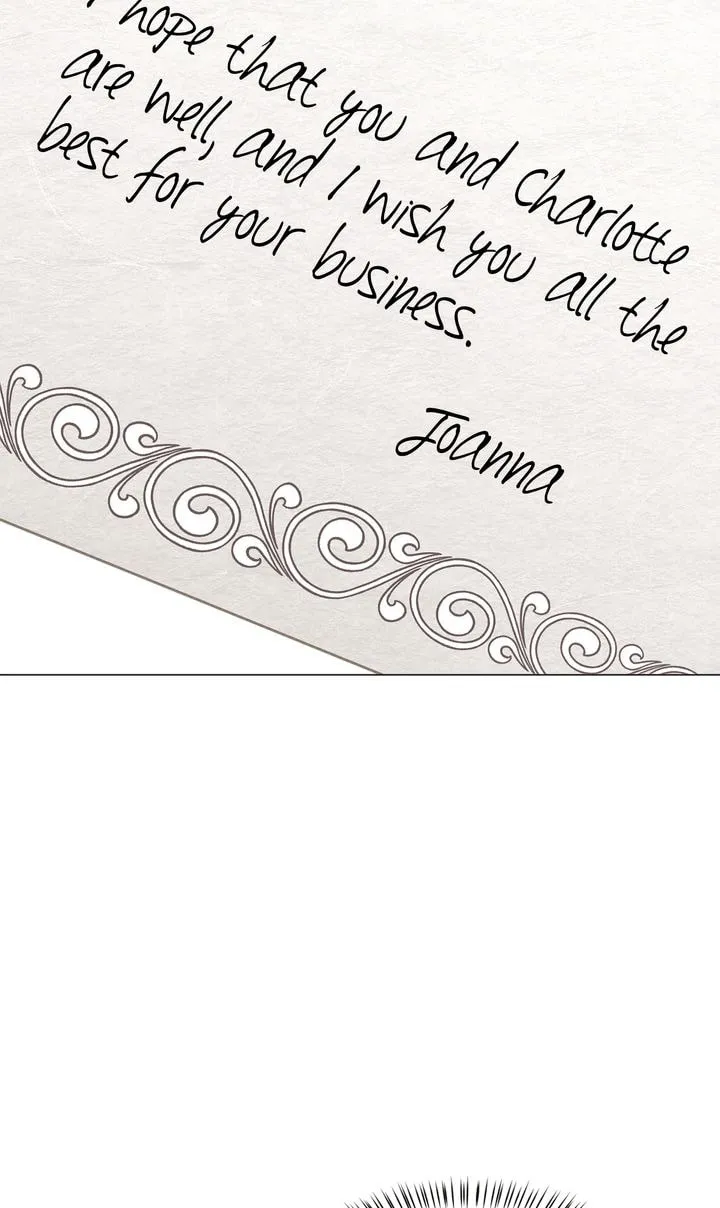 I hope that you and Charlotte
are well, and I wish you all the
best for your business.
Joanna